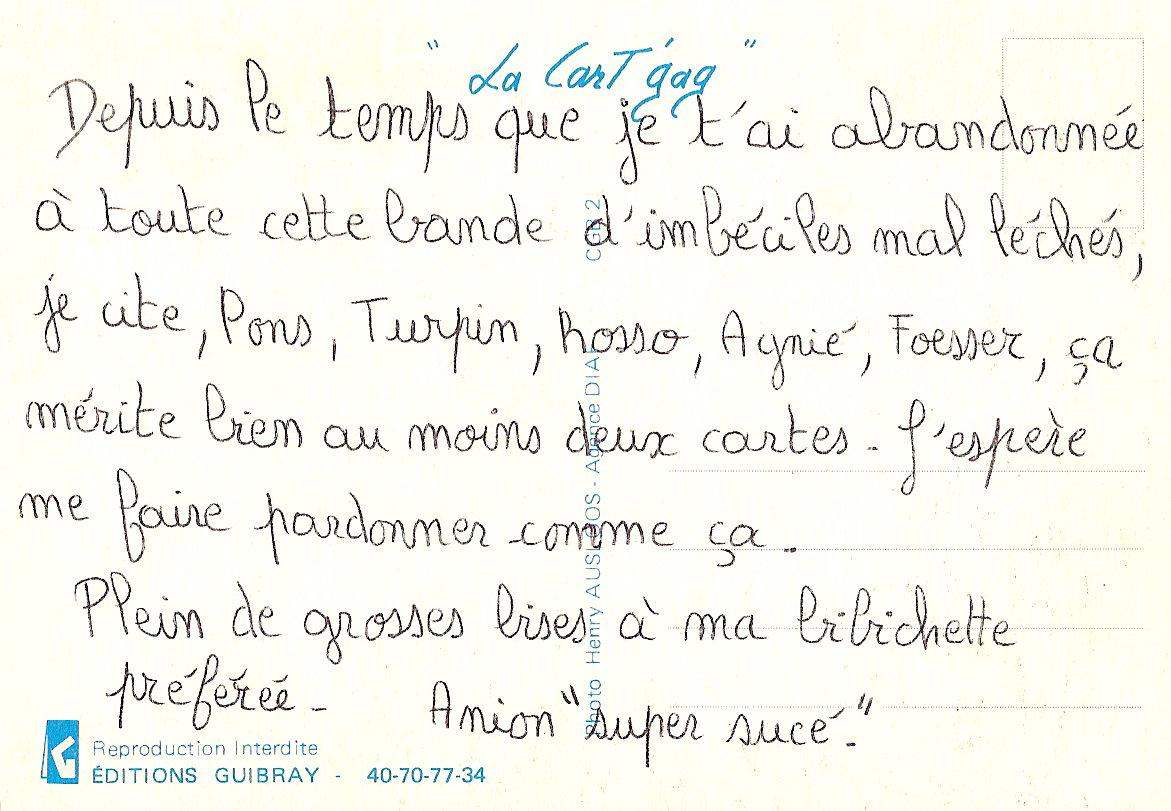 " La Cart'gag "
Depuis le temps que je t'ai abandonnée
à toute cette bande d'imbéciles mal léchés,
je cite, Pons, Turpin, Rosso, Agnié, Foesser, ça
mérite bien au moins deux cartes. J'espère
me faire pardonner comme ça.
Plein de grosses bises à ma bibichette
préférée. Anion "super sucé."
CGR 2
Photo Henry AUSLOOS - Agence DIAF
Reproduction Interdite
ÉDITIONS GUIBRAY - 40-70-77-34